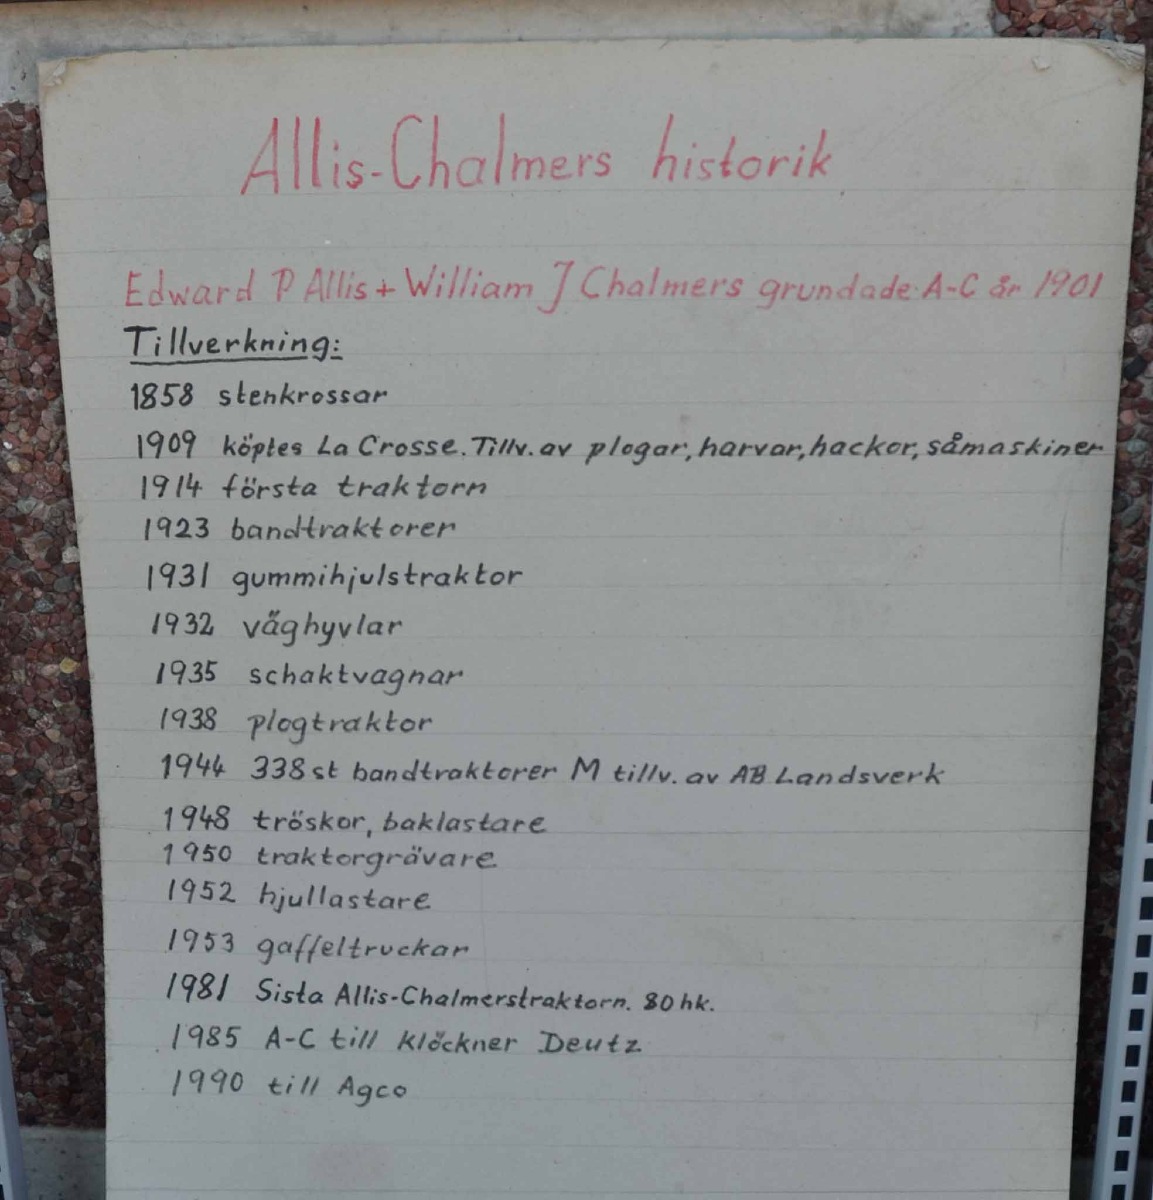 Allis-Chalmers historik
Edward P Allis + William J Chalmers grundade A-C år 1901
Tillverkning:
1858 stenkrossar
1909 köptes La Crosse. Tillv. av plogar, harvar, hackor, såmaskiner
1914 första traktorn
1923 bandtraktorer
1931 gummihjulstraktor
1932 väghyvlar
1935 schaktvagnar
1938 plogtraktor
1944 338 st bandtraktorer M tillv. av AB Landsverk
1948 tröskor, baklastare
1950 traktorgrävare
1952 hjullastare
1953 gaffeltruckar
1981 Sista Allis-Chalmerstraktorn. 80 hk.
1985 A-C till Klöckner Deutz
1990 till Agco